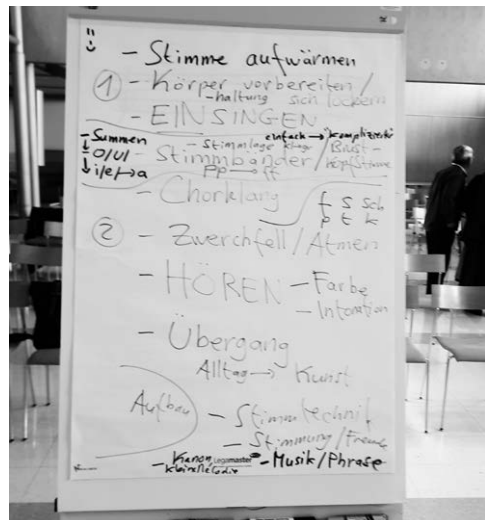 - Stimme aufwärmen
① - Körper vorbereiten /
- haltung sich lockern
- EINSINGEN
- Summen
- Stimmlage
einfach → komplizierter
↓ O/U/
- Stimmbänder / Brust-
Kopfstimme
↓ i/e/→a
pp → ff
- Chorklang
f s sch
p t k
② - Zwerchfell/Atmen
- HÖREN - Farbe
- Intonation
- Übergang
Alltag → Kunst
Aufbau
- Stimmtechnik
- Stimmung/Freude
- Kanon
Legamaster
kleine Melodie
- Musik/Phrase